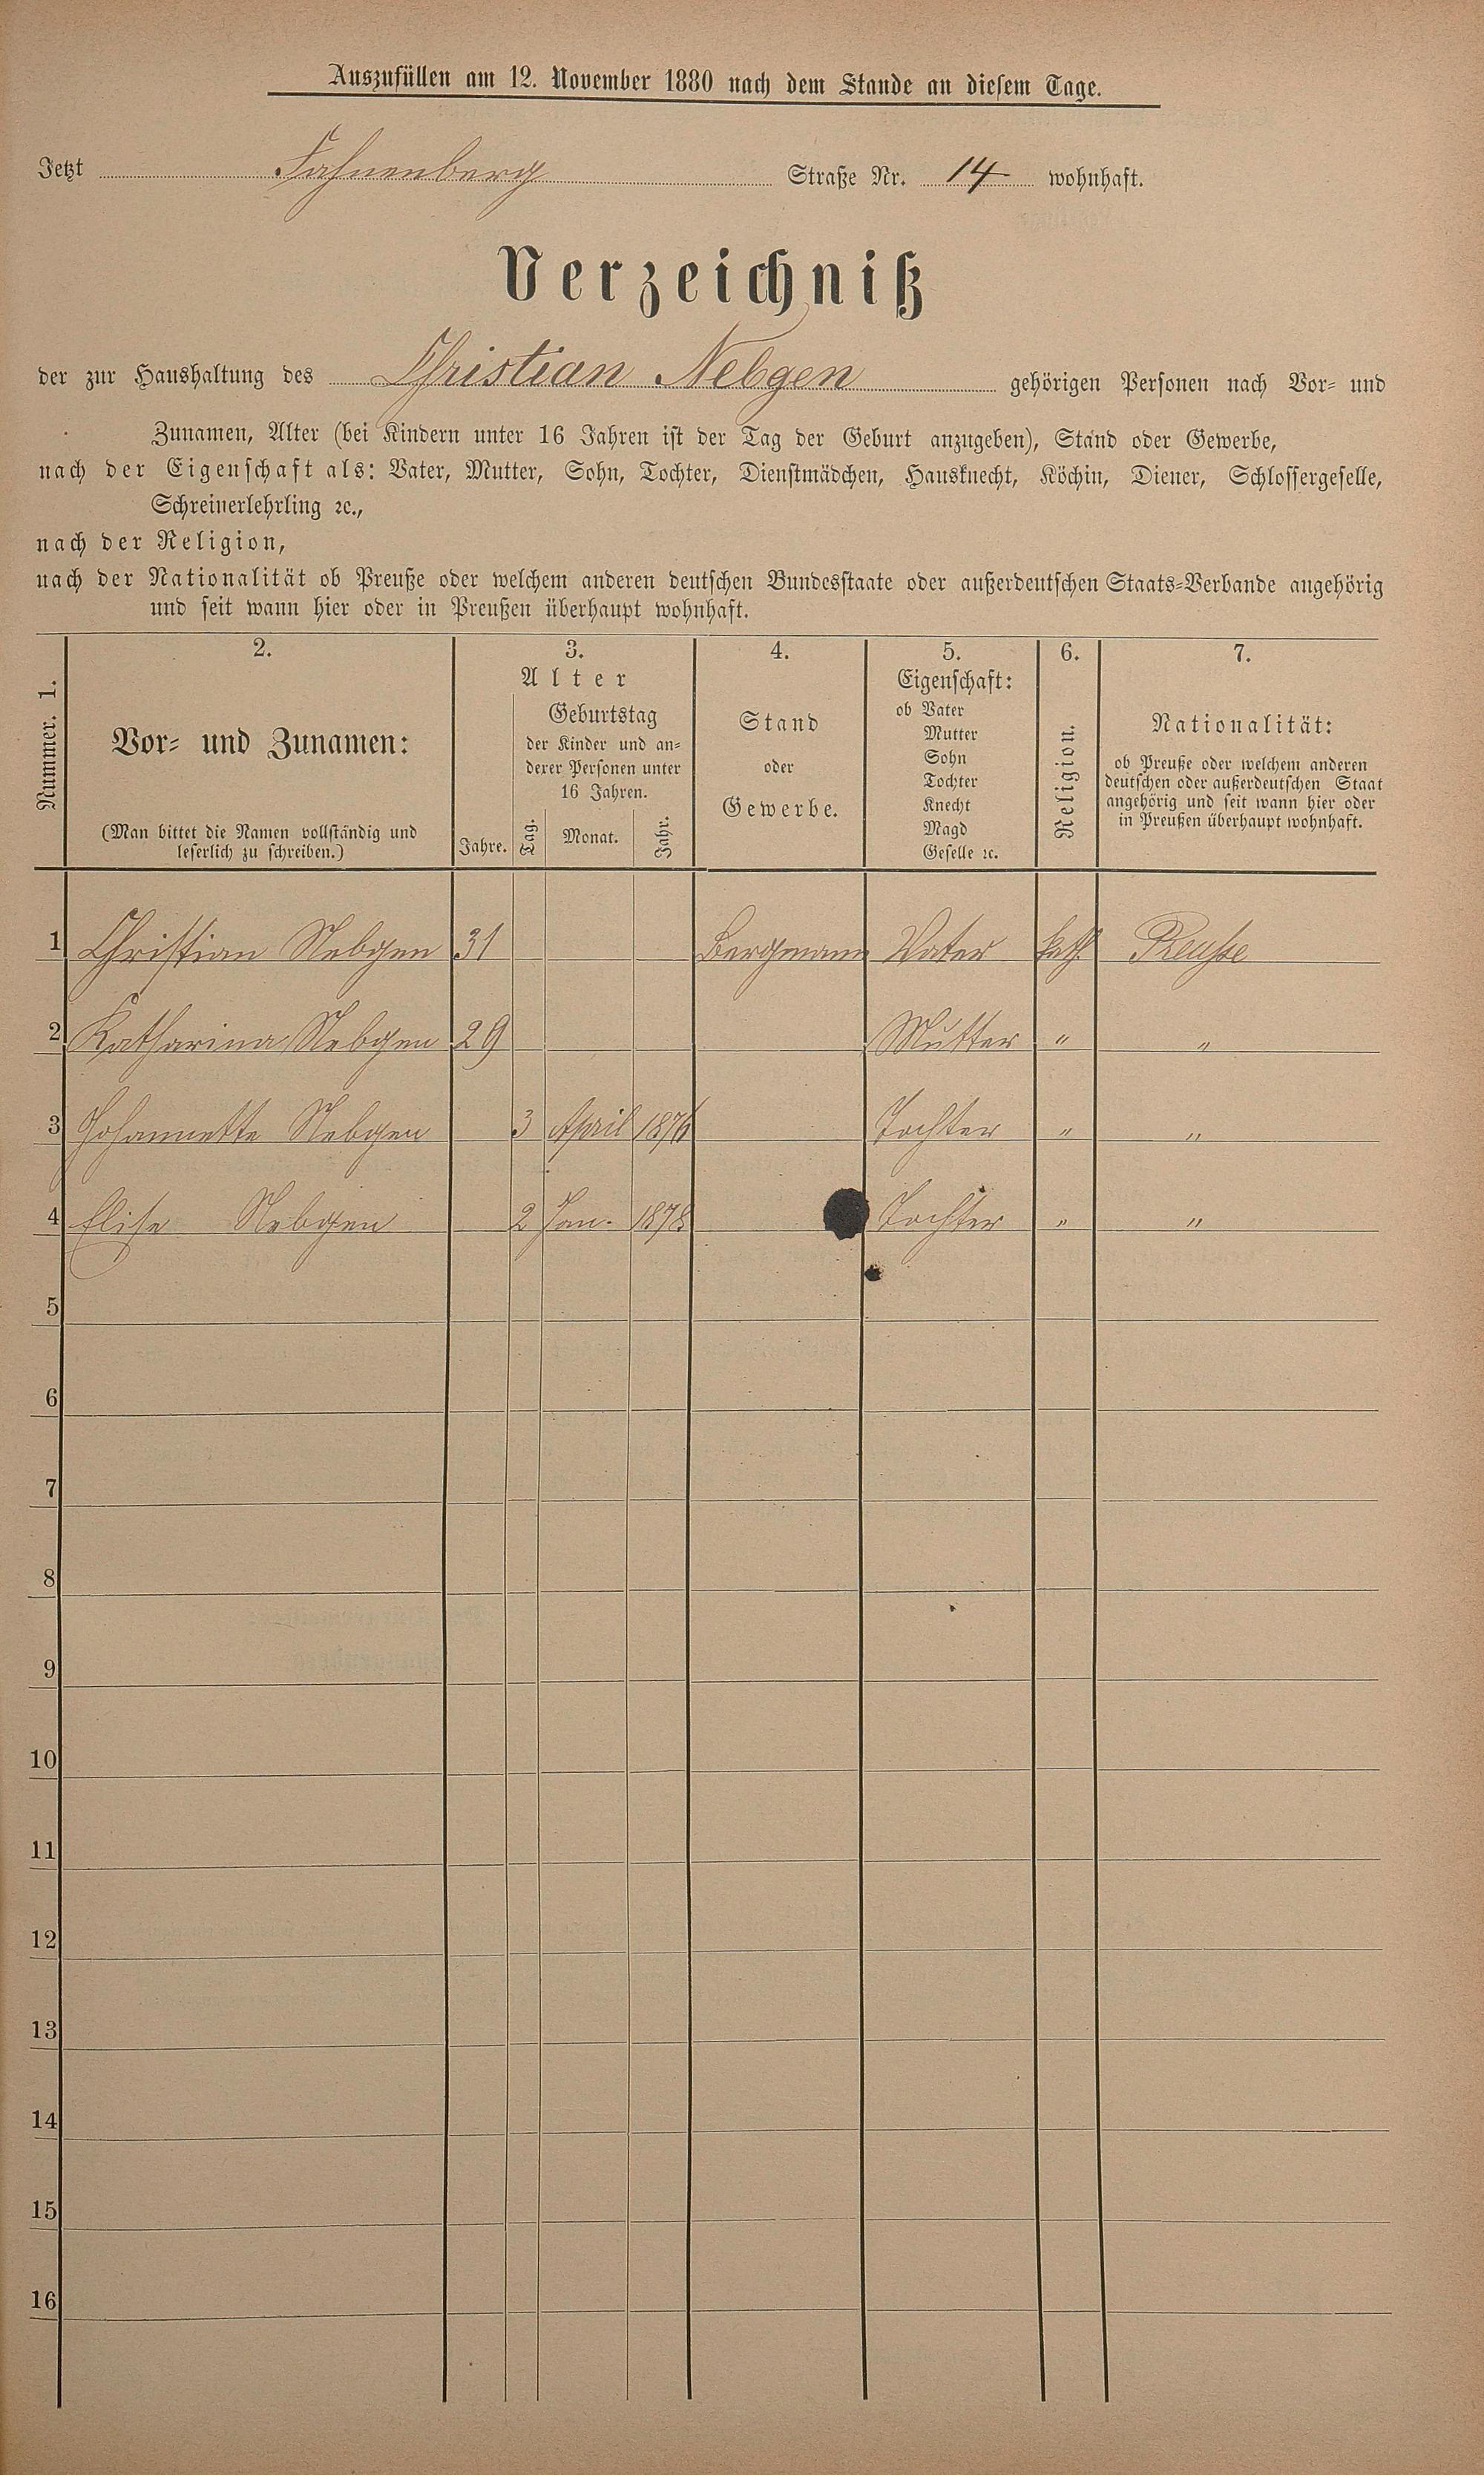 Auszufüllen am 12. November 1880 nach dem Stande an diesem Tage.
Jetzt Fahnenberg Straße Nr. 14 wohnhaft.
Verzeichniß
der zur Haushaltung des Christian Nebgen gehörigen Personen nach Vor- und
Zunamen, Alter (bei Kindern unter 16 Jahren ist der Tag der Geburt anzugeben), Stand oder Gewerbe,
nach der Eigenschaft als: Vater, Mutter, Sohn, Tochter, Dienstmädchen, Hausknecht, Köchin, Diener, Schlossergeselle,
Schreinerlehrling ꝛc.,
nach der Religion,
nach der Nationalität ob Preuße oder welchem anderen deutschen Bundesstaate oder außerdeutschen Staats-Verbande angehörig
und seit wann hier oder in Preußen überhaupt wohnhaft.
Nummer. 1.
2.
Vor- und Zunamen:
(Man bittet die Namen vollständig und
leserlich zu schreiben.)
3.
Alter
Jahre.
Geburtstag
der Kinder und an-
derer Personen unter
16 Jahren.
Tag. Monat. Jahr.
4.
Stand
oder
Gewerbe.
5.
Eigenschaft:
ob Vater
Mutter
Sohn
Tochter
Knecht
Magd
Geselle ꝛc.
6.
Religion.
7.
Nationalität:
ob Preuße oder welchem anderen
deutschen oder außerdeutschen Staat
angehörig und seit wann hier oder
in Preußen überhaupt wohnhaft.
1 Christian Nebgen 31 Bergmann Vater kath. Preuße
2 Katharina Nebgen 29 Mutter " "
3 Johannette Nebgen 3 April 1876 Tochter " "
4 Elise Nebgen 2 Jan. 1878 Tochter " "
5
6
7
8
9
10
11
12
13
14
15
16